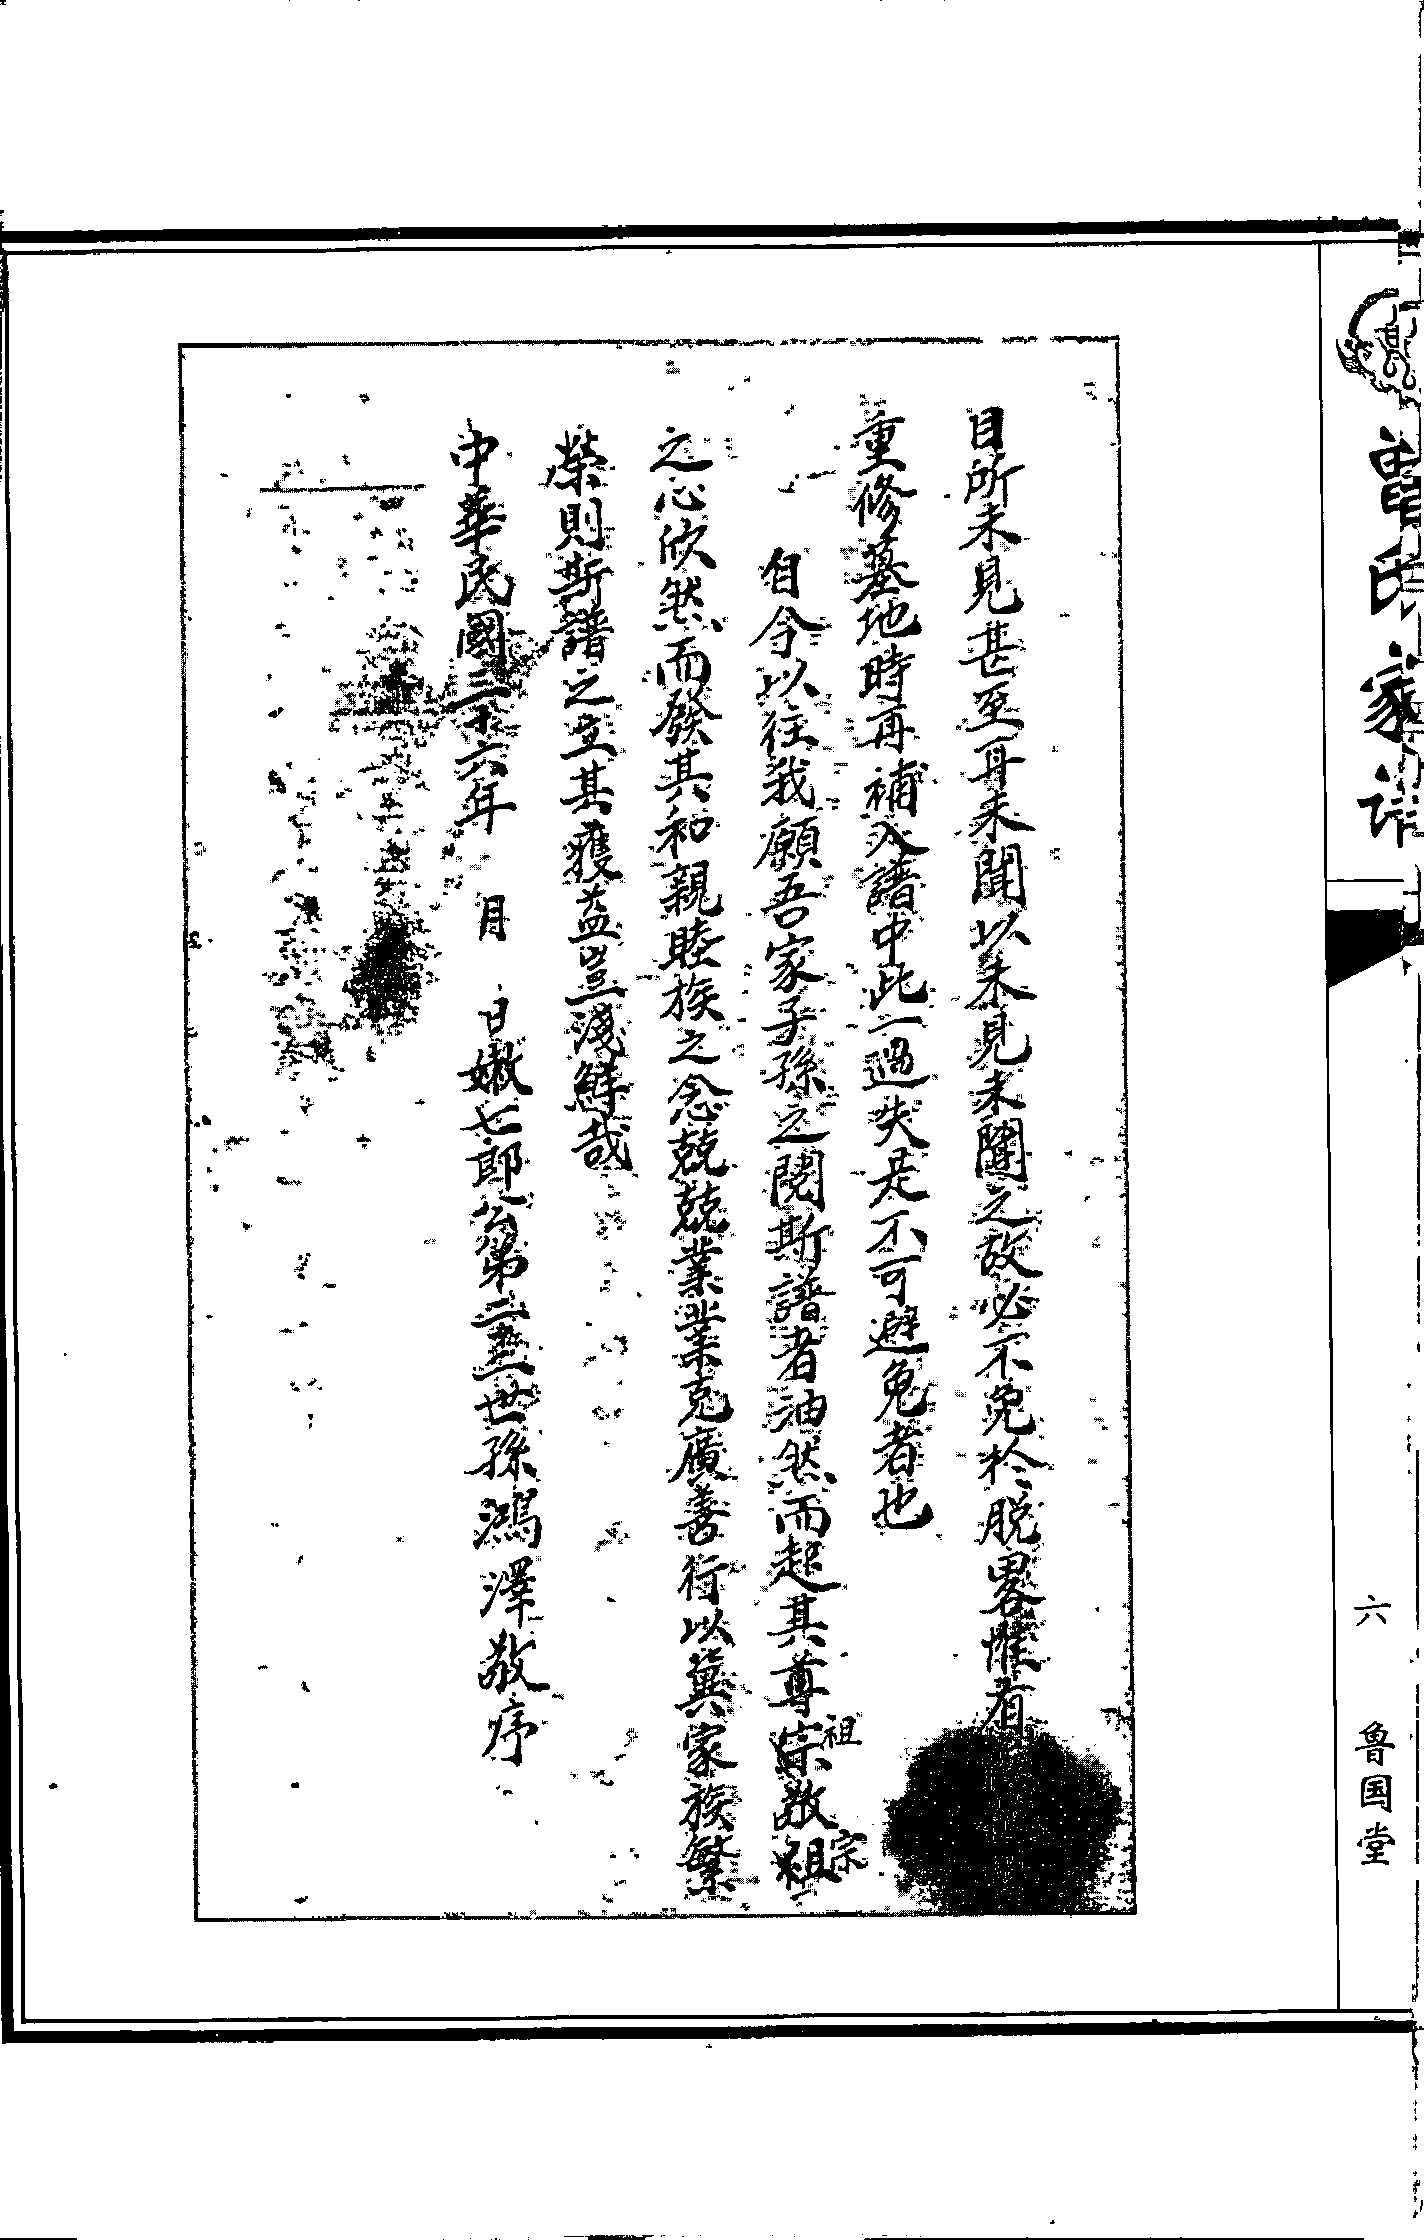 曾氏家谱
六
鲁国堂
目所未見甚至耳未聞以未見未聞之故必不免於脱畧惟有
重修墓地時再補入譜中此一過失是不可避免者也
自今以往我願吾家子孫之閱斯譜者油然而起其尊宗祖敬祖宗
之心欣然而發其和親睦族之念兢兢業業克廣善行以冀家族繁
榮則斯譜之立其獲益豈淺鮮哉
中華民國三十六年 月 日嫩七郎公第二十世孫鴻澤敬序